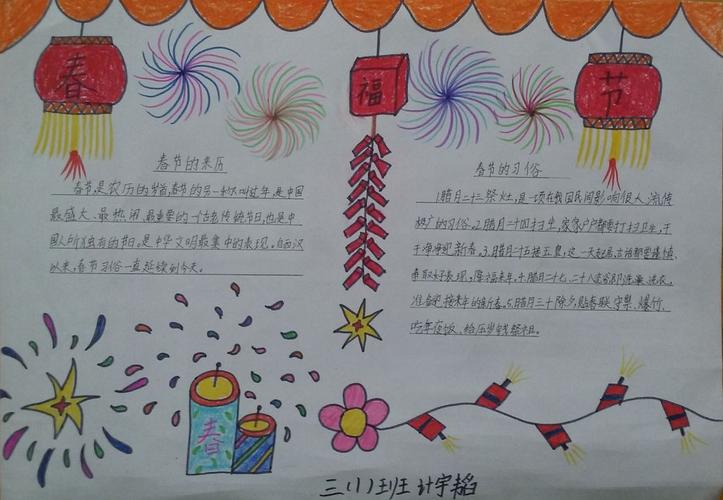 春
福
节
春节的来历
春节,是农历的岁首,春节的另一种叫过年,是中国
最盛大、最热闹、最重要的一个古老传统节日,也是中
国人所独有的节日,是中华文明最集中的表现。自西汉
以来,春节习俗一直延续到今天。
春节的习俗
1.腊月二十三祭灶,是一项在我国民间影响很大、流传
极广的习俗。2.腊月二十四扫尘,家家户户都要打扫卫生,干
干净净迎新春。3.腊月二十五接玉皇,这一天起居、言语都要谨慎,
争取好表现,降福来年。4.腊月二十七、二十八洗浴
准备迎接来年的新春。5.腊月三十除夕,贴春联、守祟、爆竹、
吃年夜饭、给压岁钱、祭祖。
春
三(1)班 计宇韬